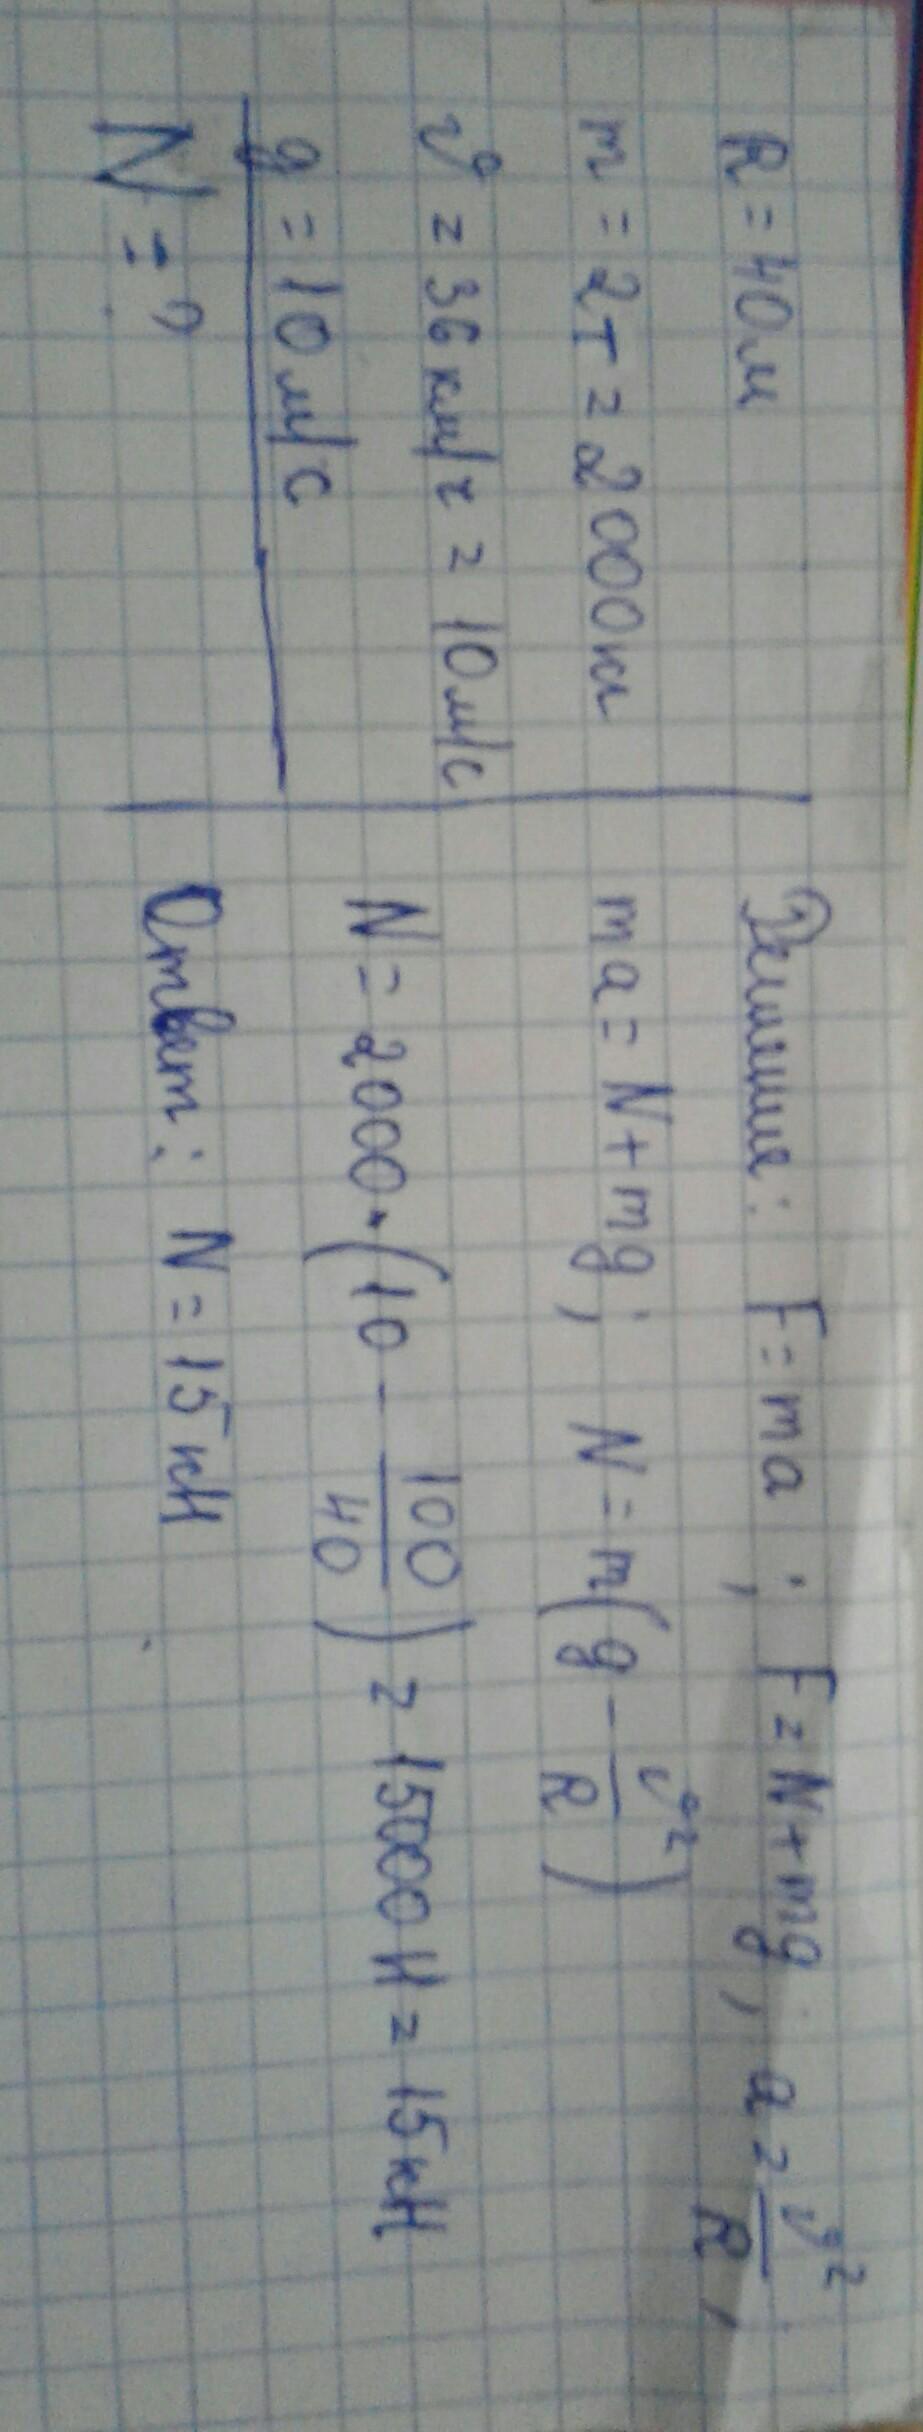 R = 40м
m = 2т = 2000кг
v = 36 км/ч = 10м/с
g = 10 м/с
N = ?
Решение: F = ma ; F = N + mg ; a = v²/R ,
ma = N + mg ; N = m(g - v²/R)
N = 2000 · (10 - 100/40) = 15000 Н = 15 кН
Ответ: N = 15 кН